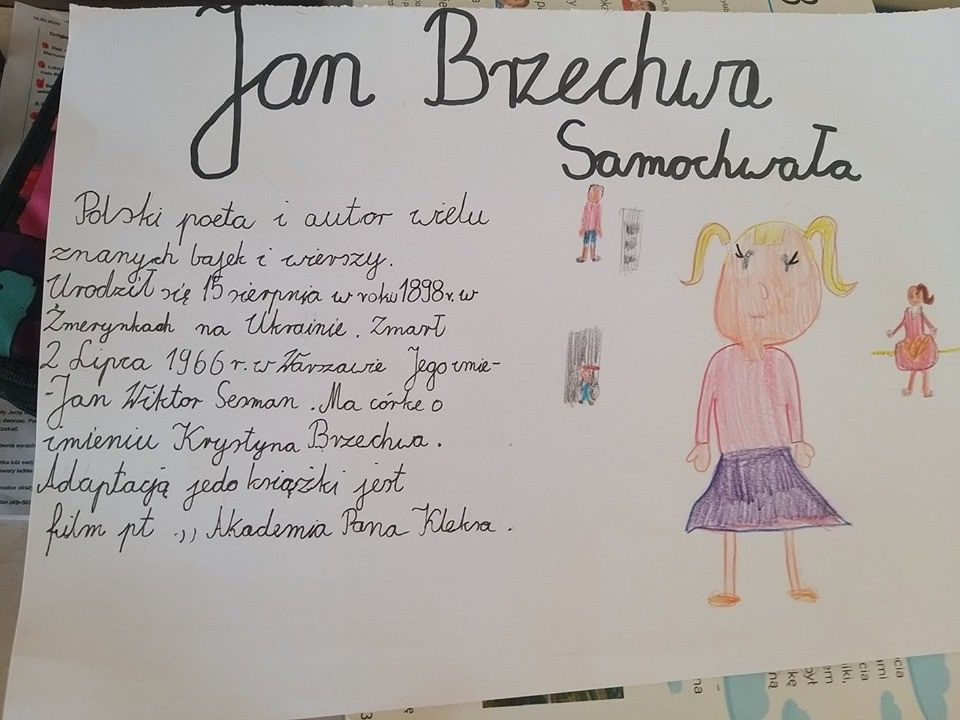 Jan Brzechwa
Samochwała
Polski poeta i autor wielu
znanych bajek i wierszy.
Urodził się 15 sierpnia w roku 1898r. w
Żmerynkach na Ukrainie. Zmarł
2 Lipca 1966r. w Warzawie Jego imie-
-Jan Wiktor Lesman. Ma córke o
imieniu Krystyna Brzechwa.
Adaptacją jedo książki jest
film pt ,, Akademia Pana Kleksa.